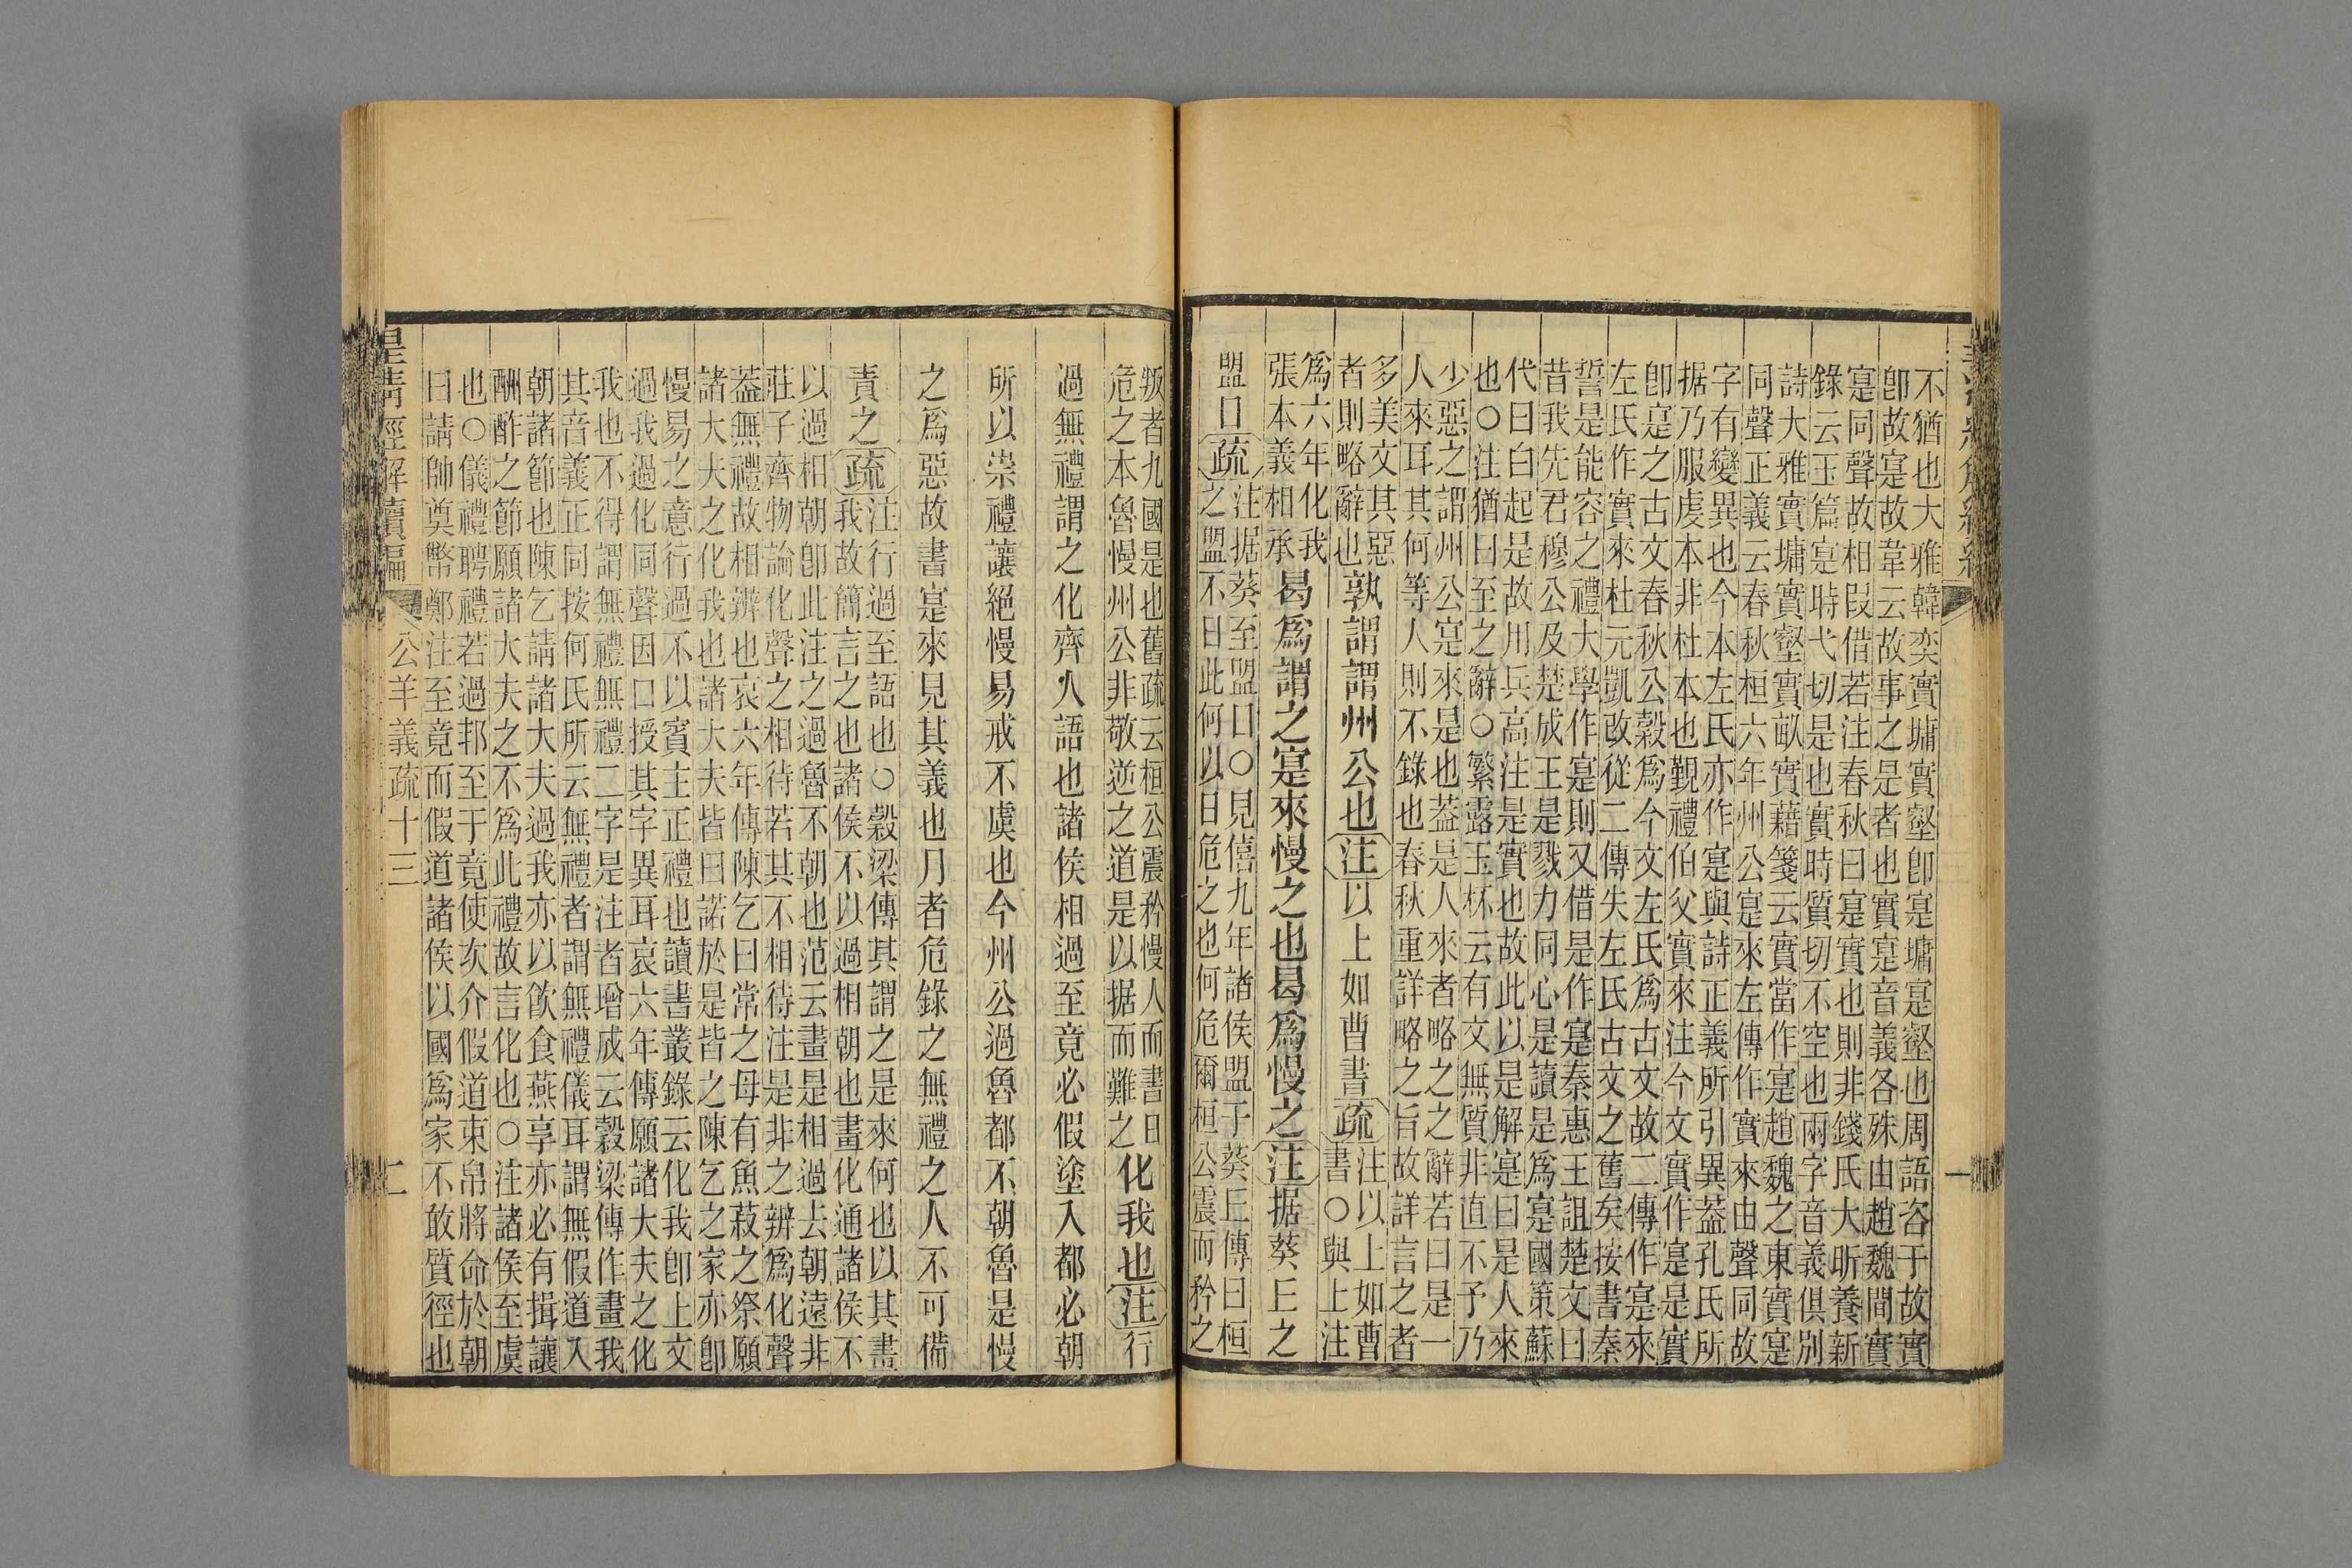 不猶也大雅韓奕實墉實壑卽寔墉寔壑也周語咨于故實
卽故寔故韋云故事之是者也實寔音義各殊由趙魏間實
寔同聲故相叚借若注春秋曰寔實也則非錢氏大昕養新
錄云玉篇寔時弋切是也實時質切不空也兩字音義俱別
詩大雅實墉實壑實畝實藉箋云實當作寔趙魏之東實寔
同聲正義云春秋桓六年州公寔來左傳作實來由聲同故
字有變異也今本左氏亦作寔與詩正義所引異蓋孔氏所
据乃服虔本非杜本也覲禮伯父實來注今文實作寔是實
卽寔之古文春秋公穀爲今文左氏爲古文故二傳作寔來
左氏作實來杜元凱改從二傳失左氏古文之舊矣按書秦
誓是能容之禮大學作寔則又借是作寔秦惠王詛楚文曰
昔我先君穆公及楚成王是戮力同心是讀是爲寔國策蘇
代曰白起是故用兵高注是實也故此以是解寔曰是人來
也○注猶曰至之辭○繁露玉杯云有文無質非直不予乃
少惡之謂州公寔來是也蓋是人來者略之之辭若曰是一
人來耳其何等人則不錄也春秋重詳略之旨故詳言之者
多美文其惡
者則略辭也孰謂謂州公也注以上如曹書疏注以上如曹
書○與上注
爲六年化我
張本義相承曷爲謂之寔來慢之也曷爲慢之注据葵丘之
盟日疏注据葵至盟日○見僖九年諸侯盟于葵丘傳曰桓
之盟不日此何以日危之也何危爾桓公震而矜之
一
叛者九國是也舊疏云桓公震矜慢人而書日
危之本魯慢州公非敬逆之道是以据而難之化我也注行
過無禮謂之化齊人語也諸侯相過至竟必假塗入都必朝
所以崇禮讓絕慢易戒不虞也今州公過魯都不朝魯是慢
之爲惡故書寔來見其義也月者危錄之無禮之人不可備
責之疏注行過至語也○穀梁傳其謂之是來何也以其畫
我故簡言之也諸侯不以過相朝也畫化通諸侯不
以過相朝卽此注之過魯不朝也范云畫是相過去朝遠非
莊子齊物論化聲之相待若其不相待注是非之辨爲化聲
蓋無禮故相辨也哀六年傳陳乞曰常之母有魚菽之祭願
諸大夫之化我也諸大夫皆曰諾於是皆之陳乞之家亦卽
慢易之意行過不以賓主正禮也讀書叢錄云化我卽上文
過我過化同聲因口授其字異耳哀六年傳願諸大夫之化
我也不得謂無禮無禮二字是注者增成云穀梁傳作畫我
其音義正同按何氏所云無禮者謂無禮儀耳謂無假道入
朝諸節也陳乞請諸大夫過我亦以飲食燕享亦必有揖讓
酬酢之節願諸大夫之不爲此禮故言化也○注諸侯至虞
也○儀禮聘禮若過邦至于竟使次介假道束帛將命於朝
曰請帥奠幣鄭注至竟而假道諸侯以國爲家不敢質徑也
皇清經解續編 公羊義疏十三 二